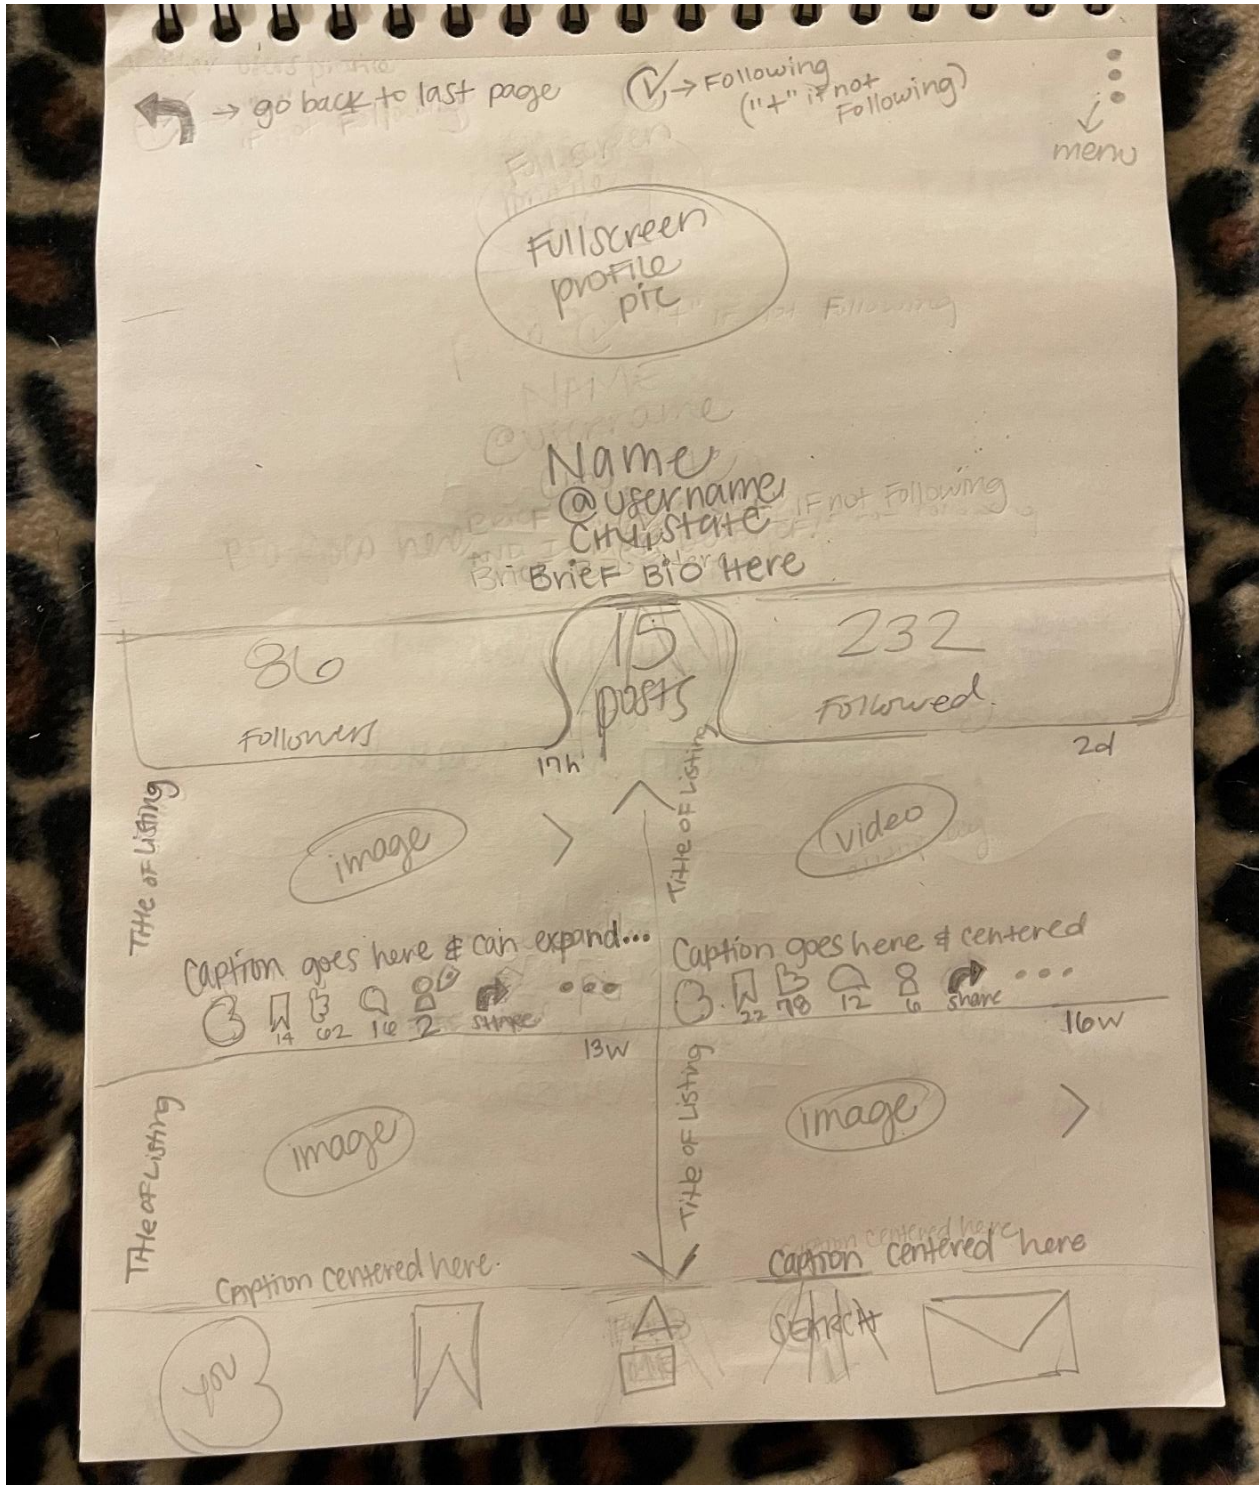 → go back to last page
→ Following
("+" if not
Following)
menu
Fullscreen
profile
pic
Name
@username
City, State
Brief Bio Here
86
Followers
15
posts
232
Followed
17h
2d
Title of Listing
image
Title of Listing
video
Caption goes here & can expand...
Caption goes here & centered
14 62 16 2 share
22 78 12 6 share
13w
16w
Title of Listing
image
Title of Listing
image
Caption centered here.
Caption centered here
you
SEARCH